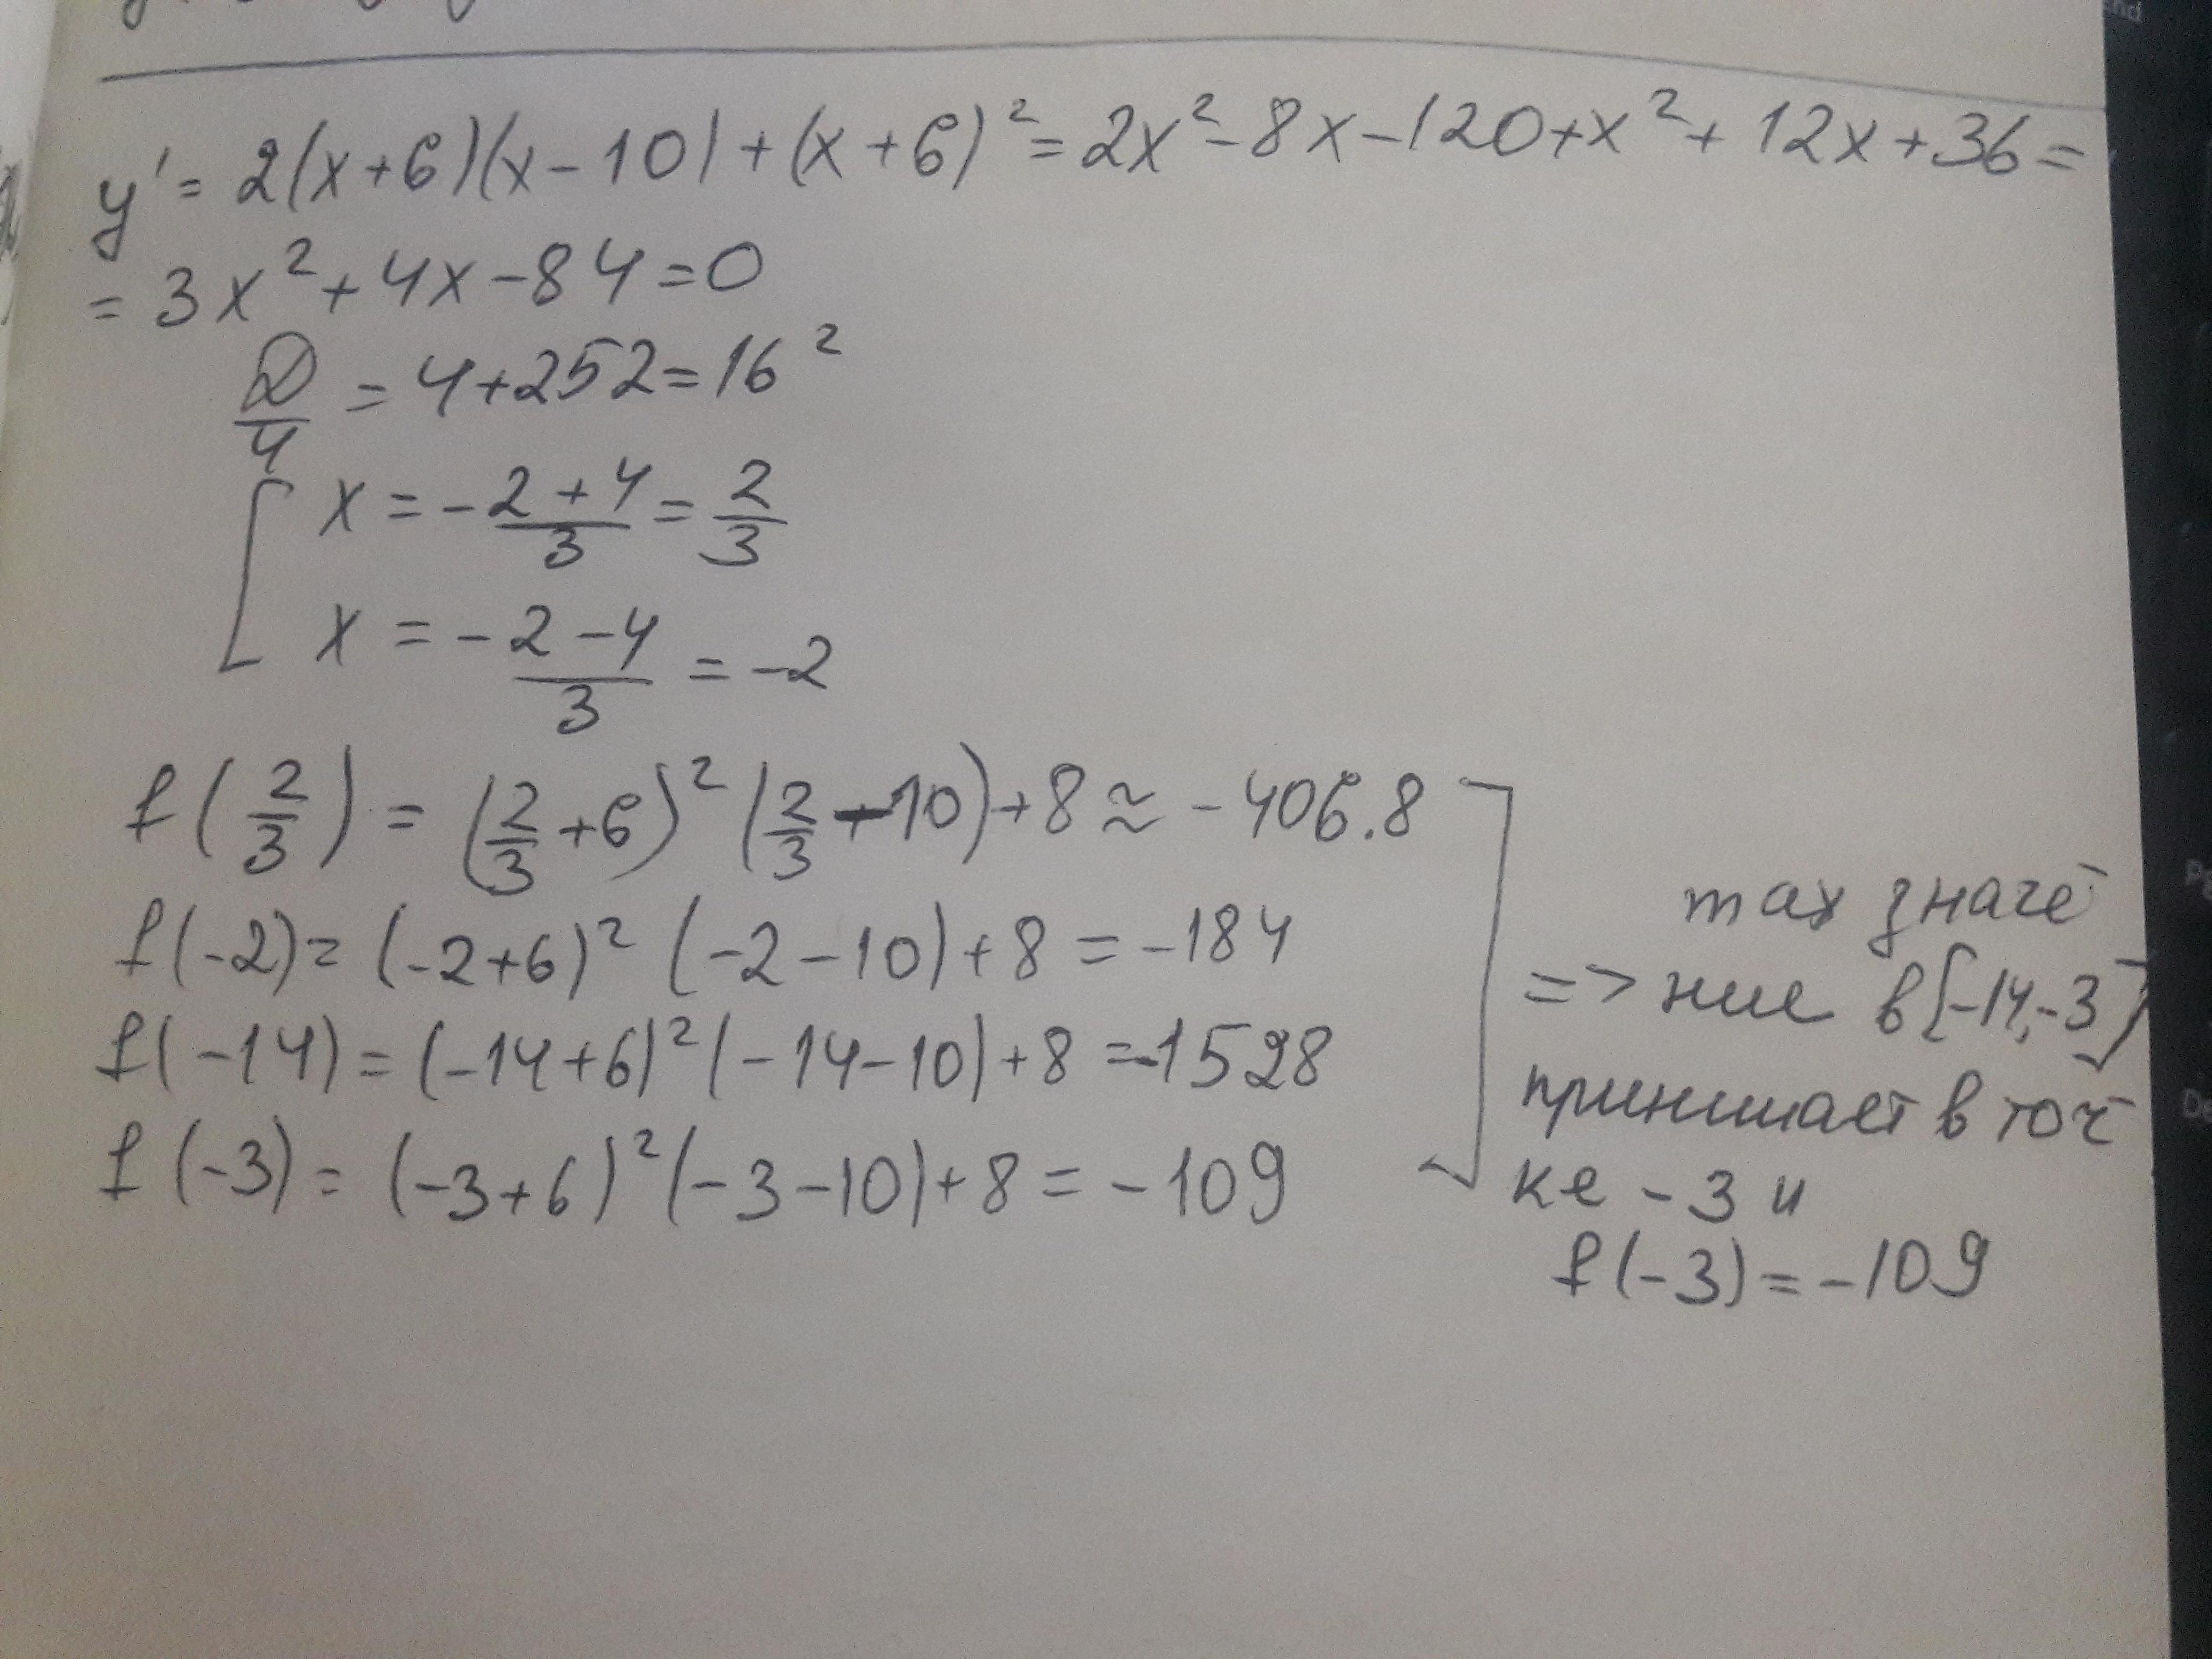 y' = 2(x+6)(x-10)+(x+6)² = 2x²-8x-120+x²+12x+36 =
= 3x²+4x-84=0
D/4 = 4+252=16²
x = -2+4/3 = 2/3
x = -2-4/3 = -2
f(2/3) = (2/3+6)²(2/3-10)+8 ≈ -406.8
f(-2)= (-2+6)² (-2-10)+8 = -184
f(-14) = (-14+6)²(-14-10)+8 =-1528
f(-3) = (-3+6)²(-3-10)+8 = -109
max значе
=> ние в [-14,-3]
принимает в точ
ке -3 и
f(-3) = -109